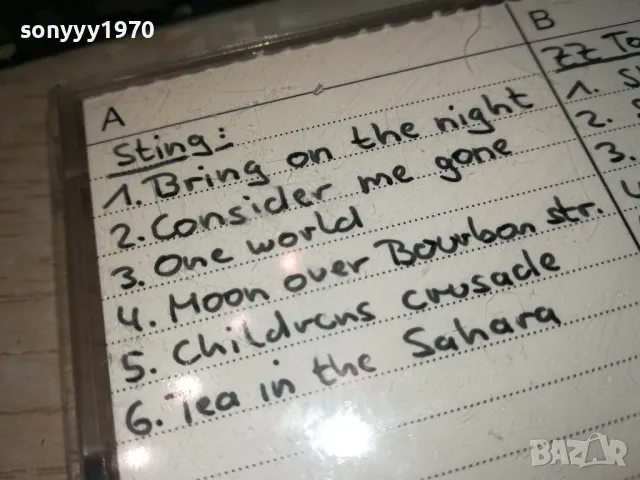 sonyyy1970
A
Sting:
1. Bring on the night
2. Consider me gone
3. One world
4. Moon over Bourbon str.
5. Childrens crusade
6. Tea in the Sahara
B
ZZ To
1. S
2.
3.
4
BAZAR